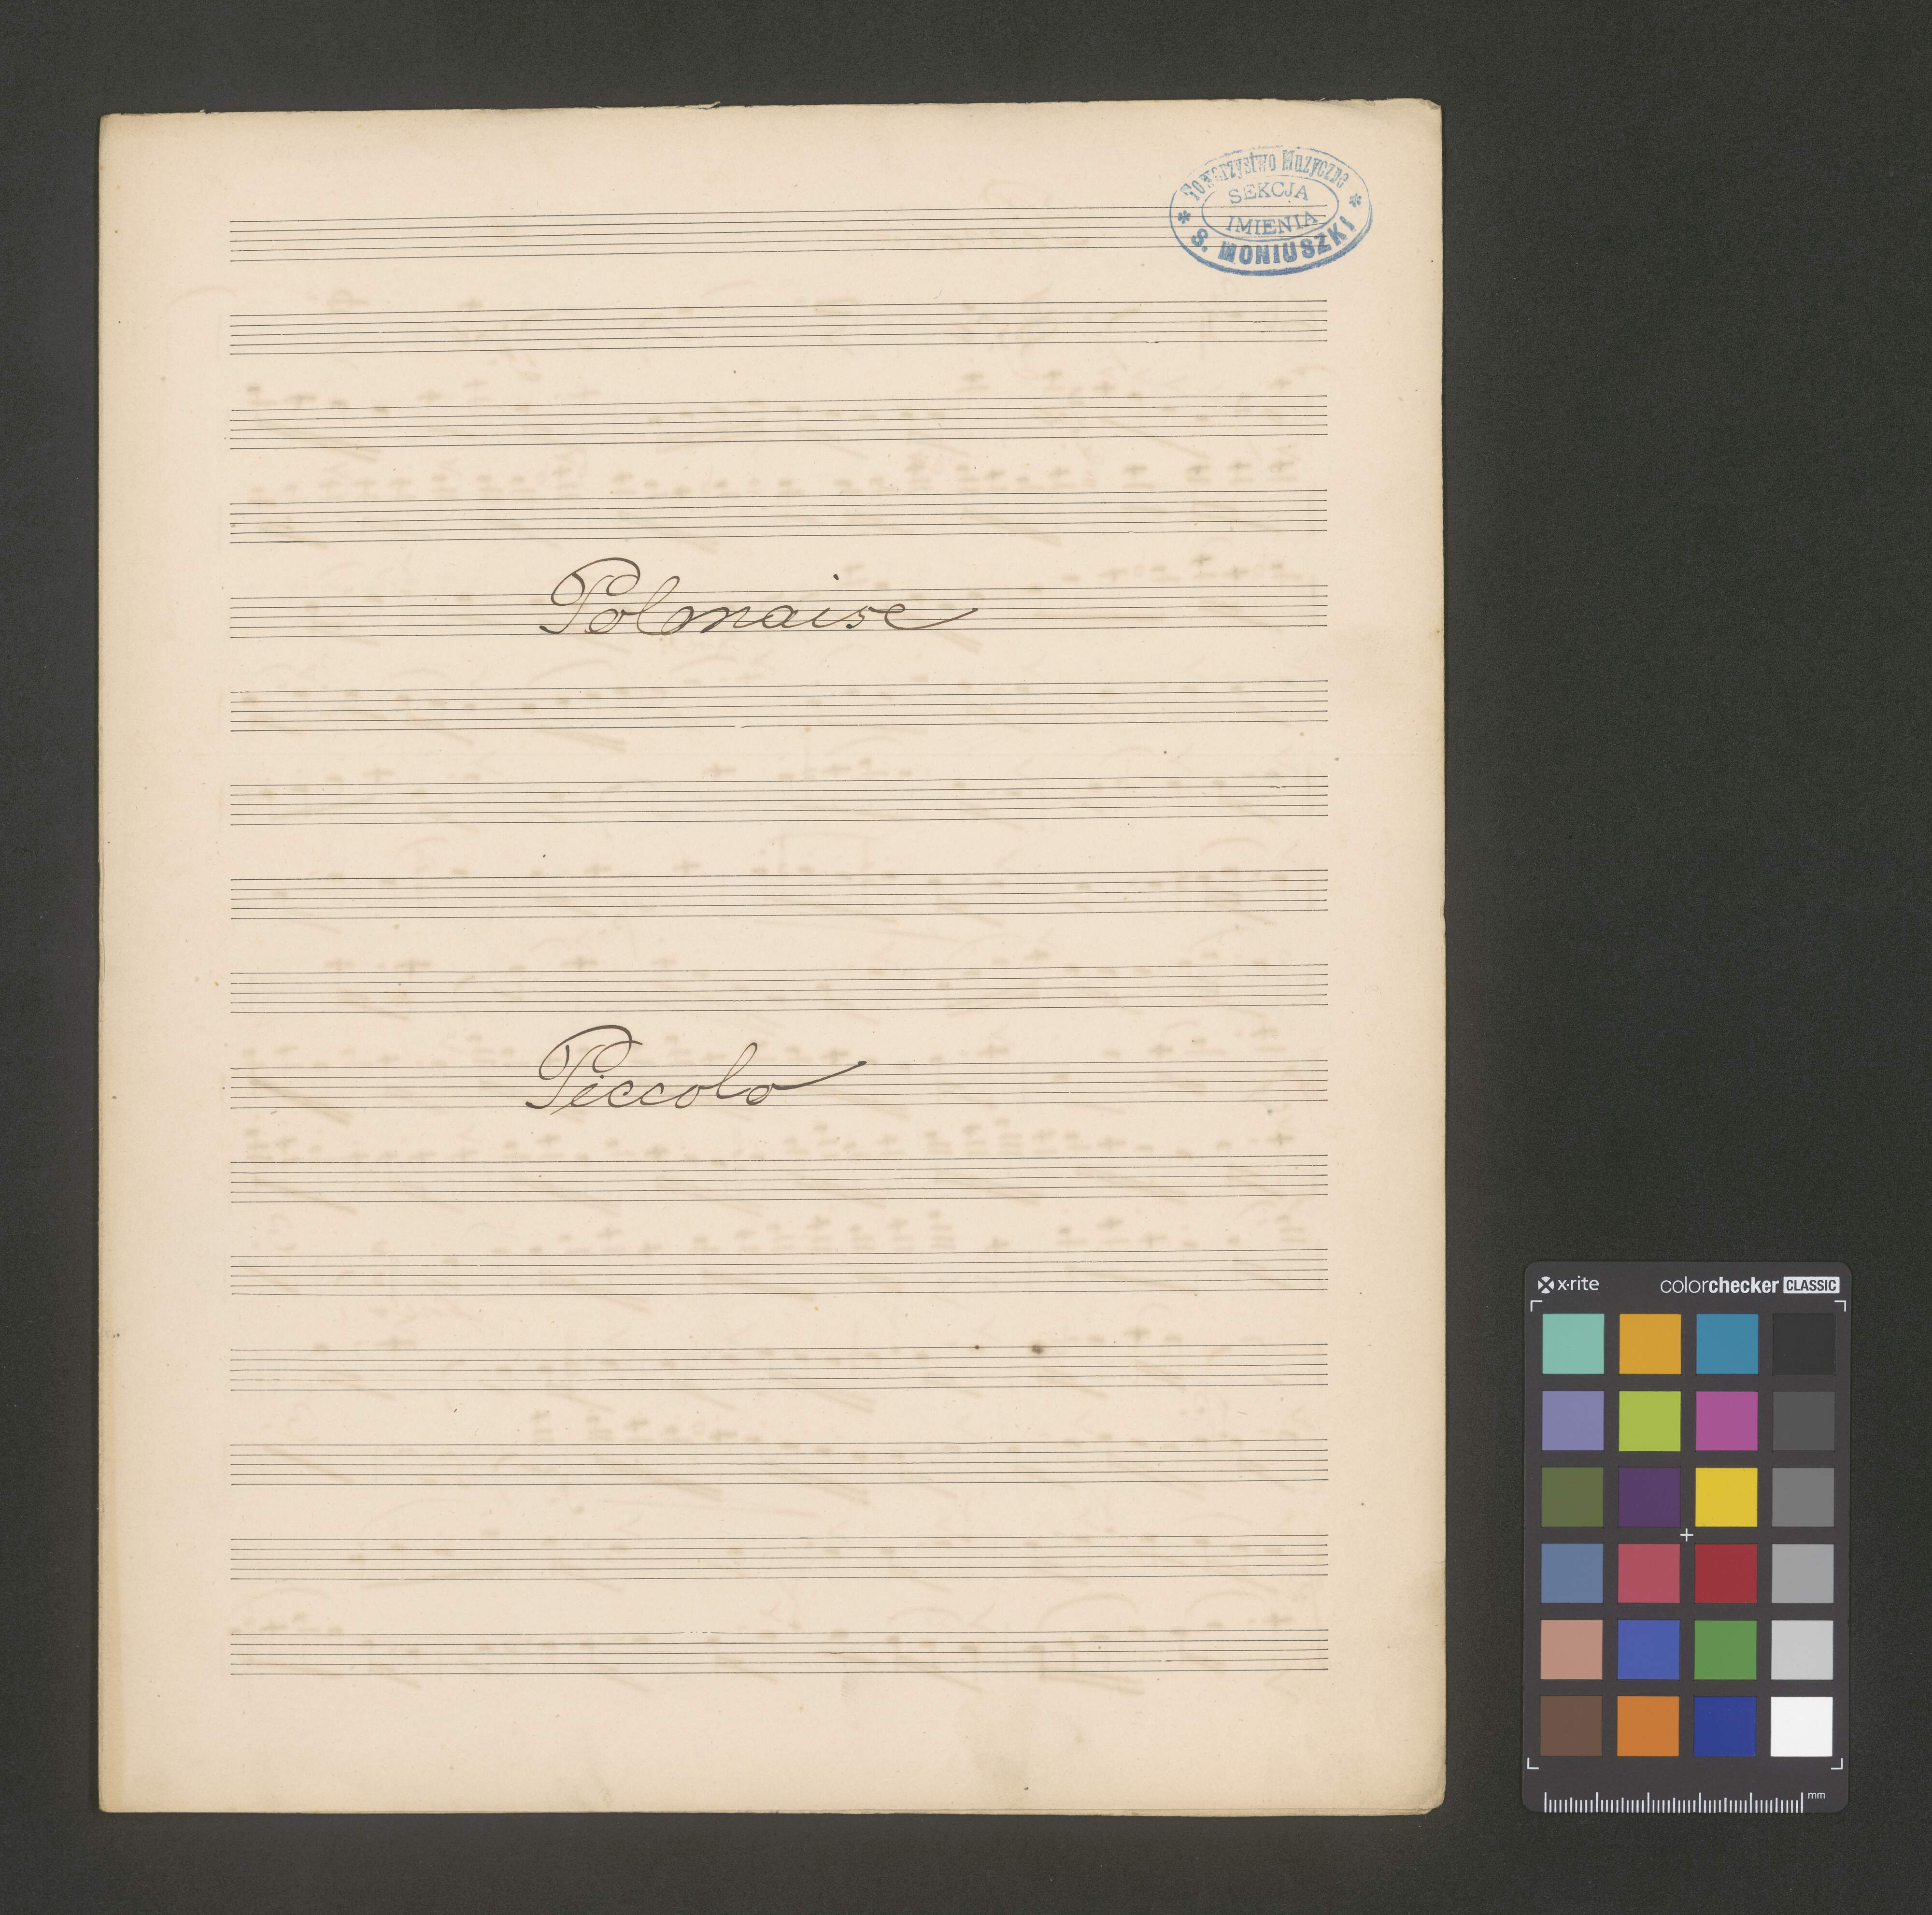 Towarzystwo Muzyczne
SEKCJA
IMIENIA
* S. MONIUSZKI *
Polonaise
Piccolo
x·rite colorchecker CLASSIC
mm